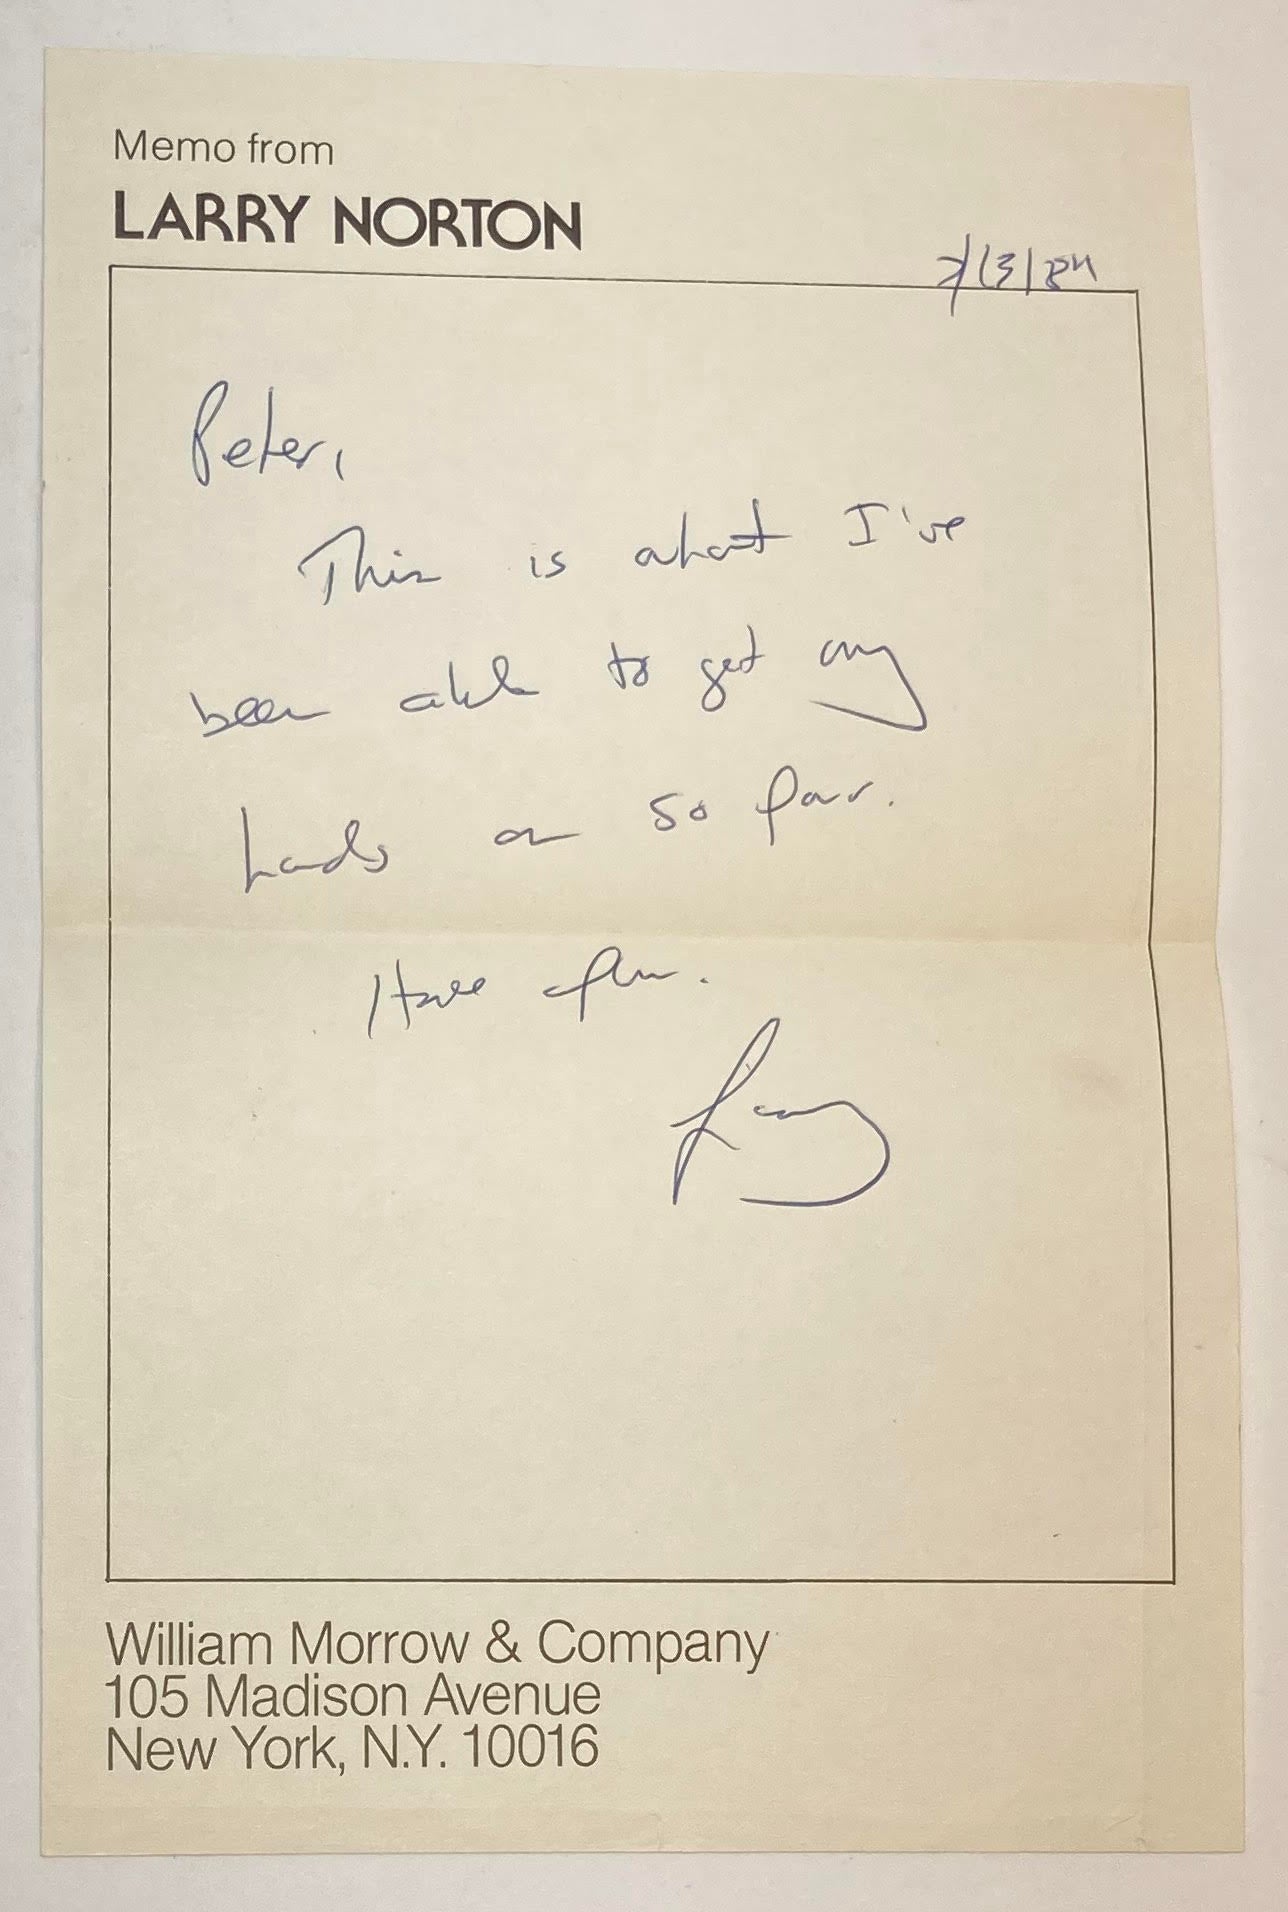 Memo from
LARRY NORTON
7/13/84
Peter,
This is what I've
been able to get my
hands on so far.
Have fun.
Larry
William Morrow & Company
105 Madison Avenue
New York, N.Y. 10016